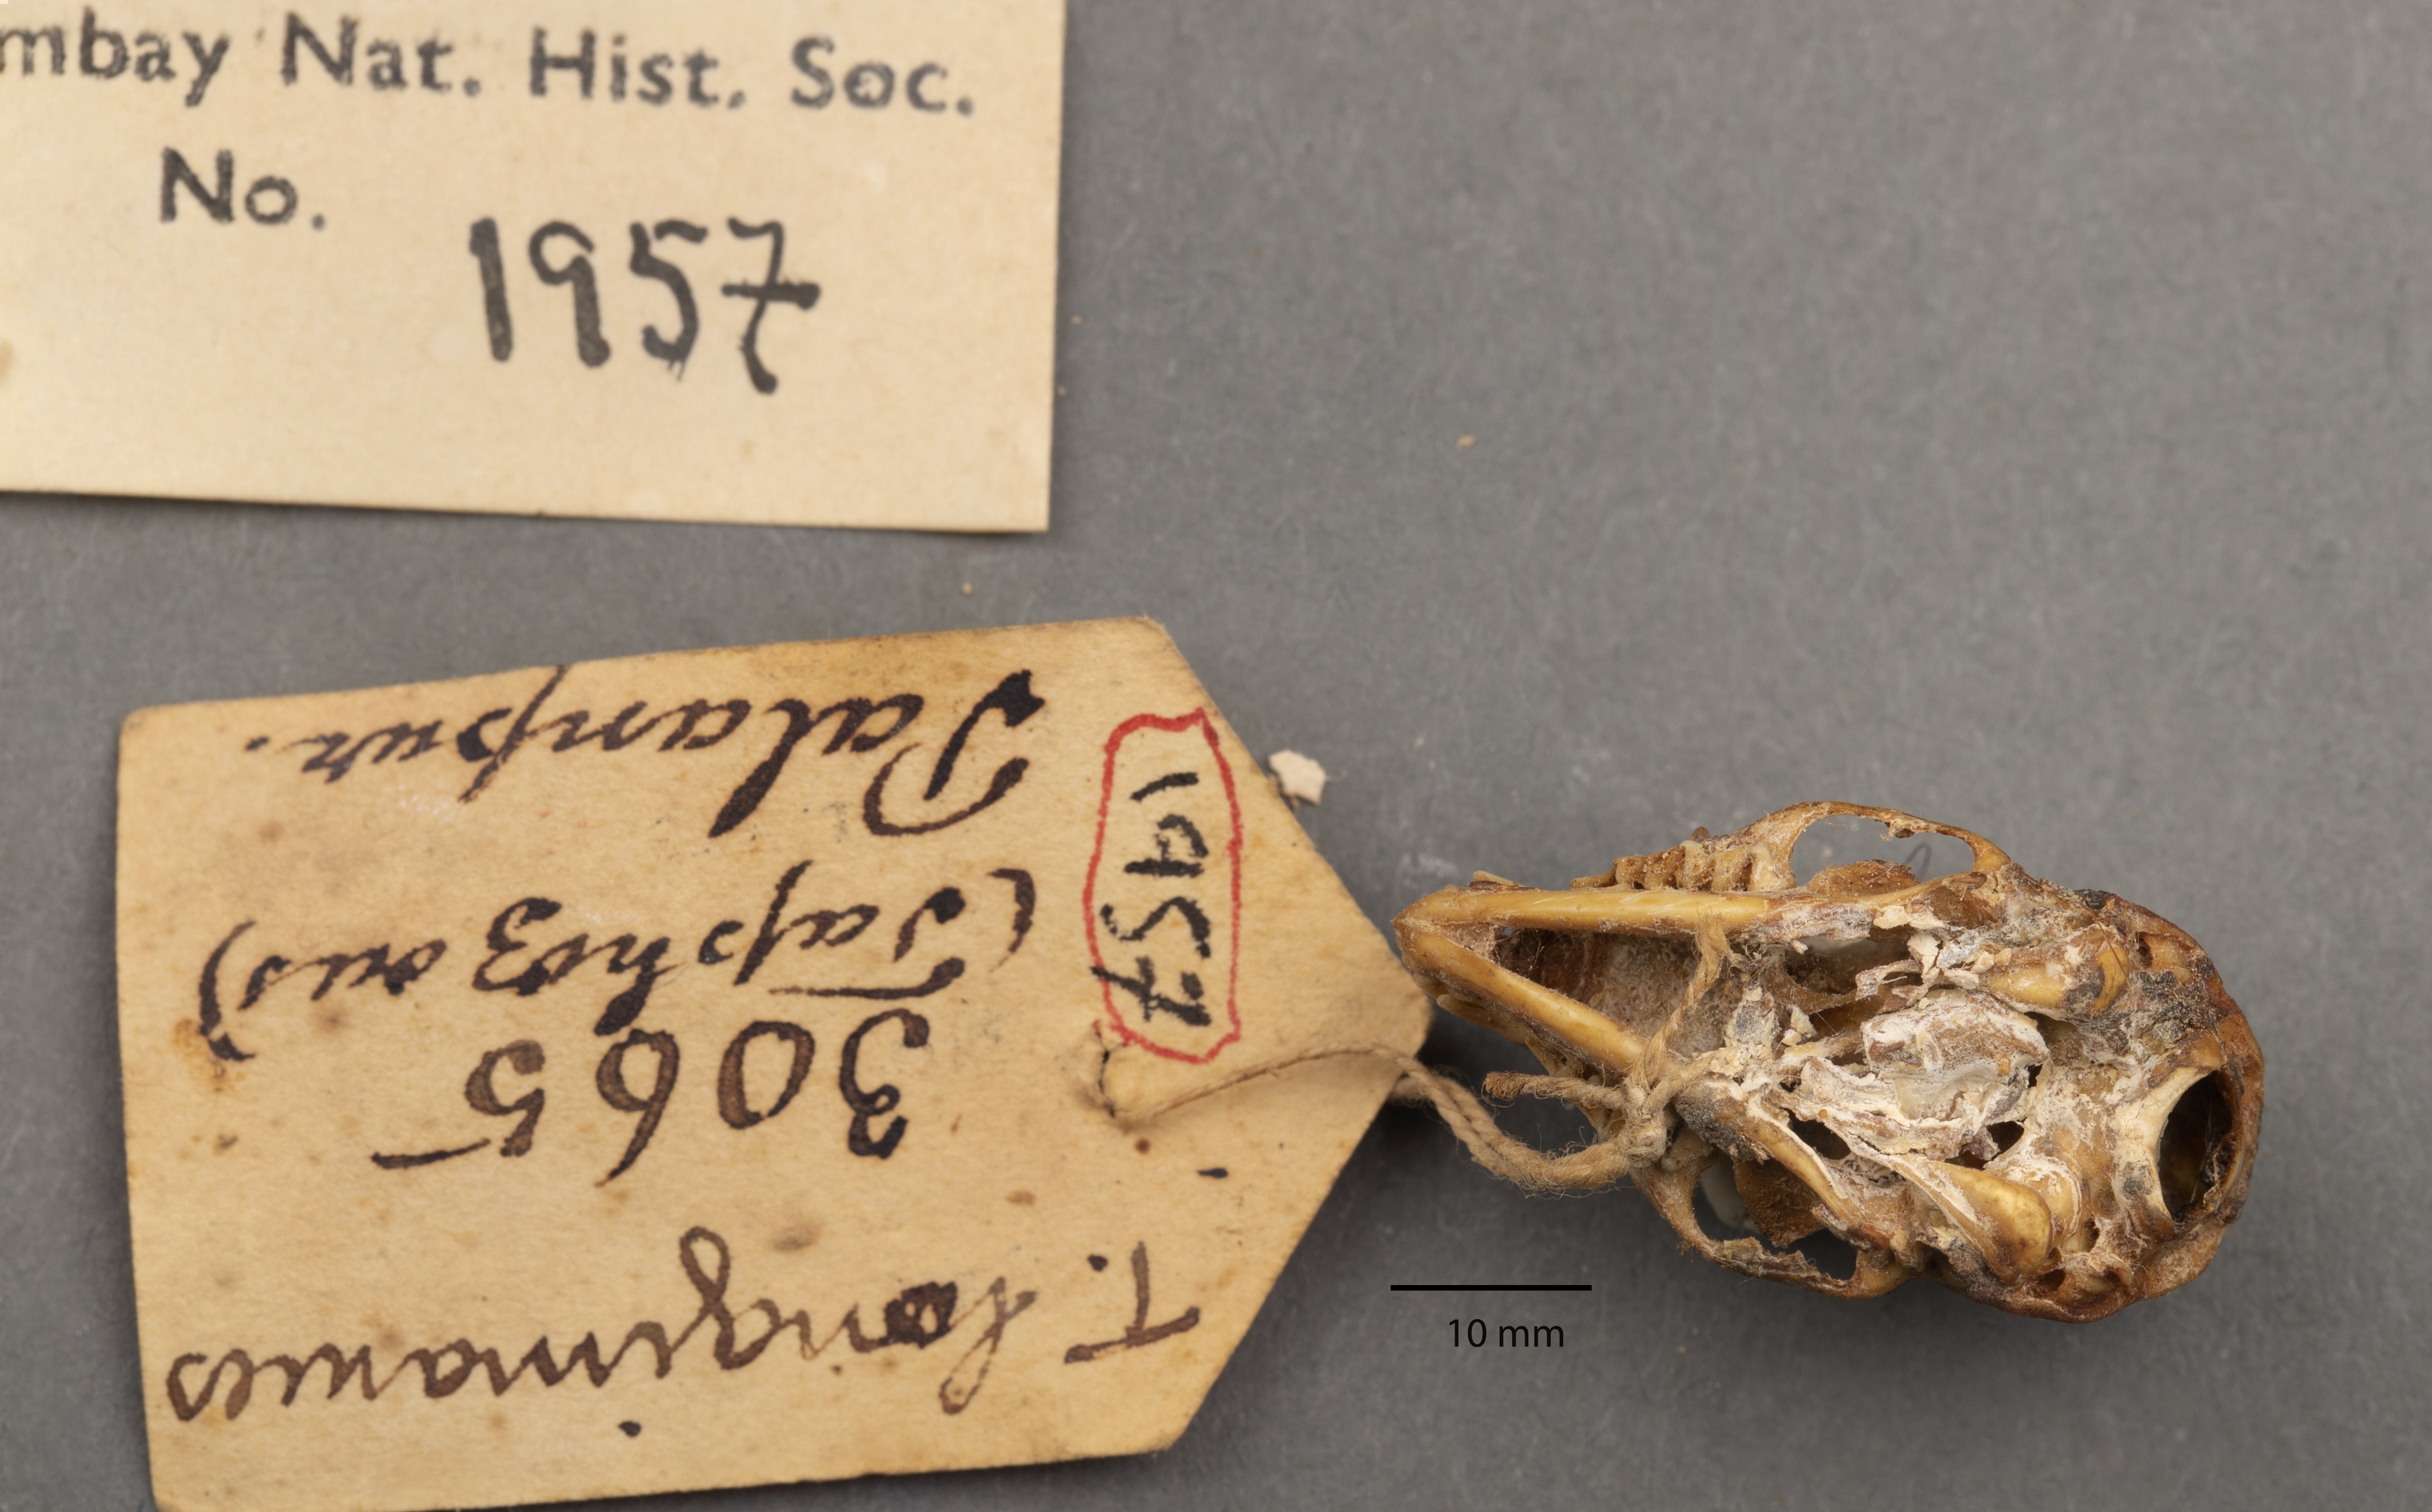 mbay Nat. Hist. Soc.
No.
1957
1957
T. longimanus
3065
(Taphozous)
Palanpur.
10 mm